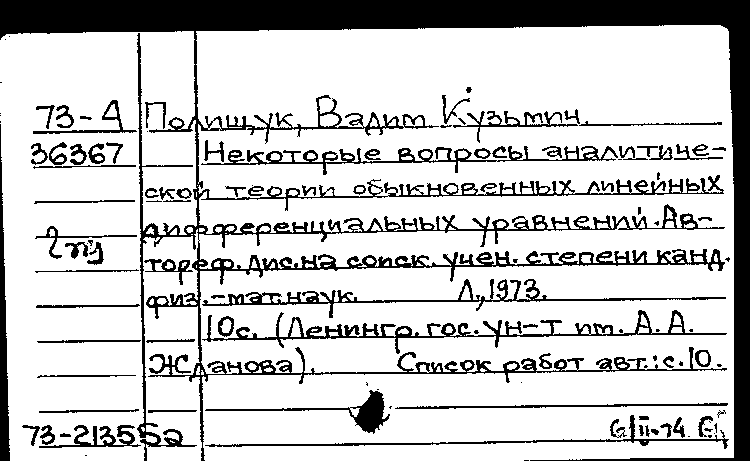 73-А Полищук, Вадим Кузьмич.
36367 Некоторые вопросы аналитиче-
ской теории обыкновенных линейных
дифференциальных уравнений. Ав-
тореф. дис. на соиск. учен. степени канд.
физ.-мат. наук. Л., 1973.
10с. (Ленингр. гос. ун-т им. А. А.
Жданова). Список работ авт.: с. 10.
73-21355а